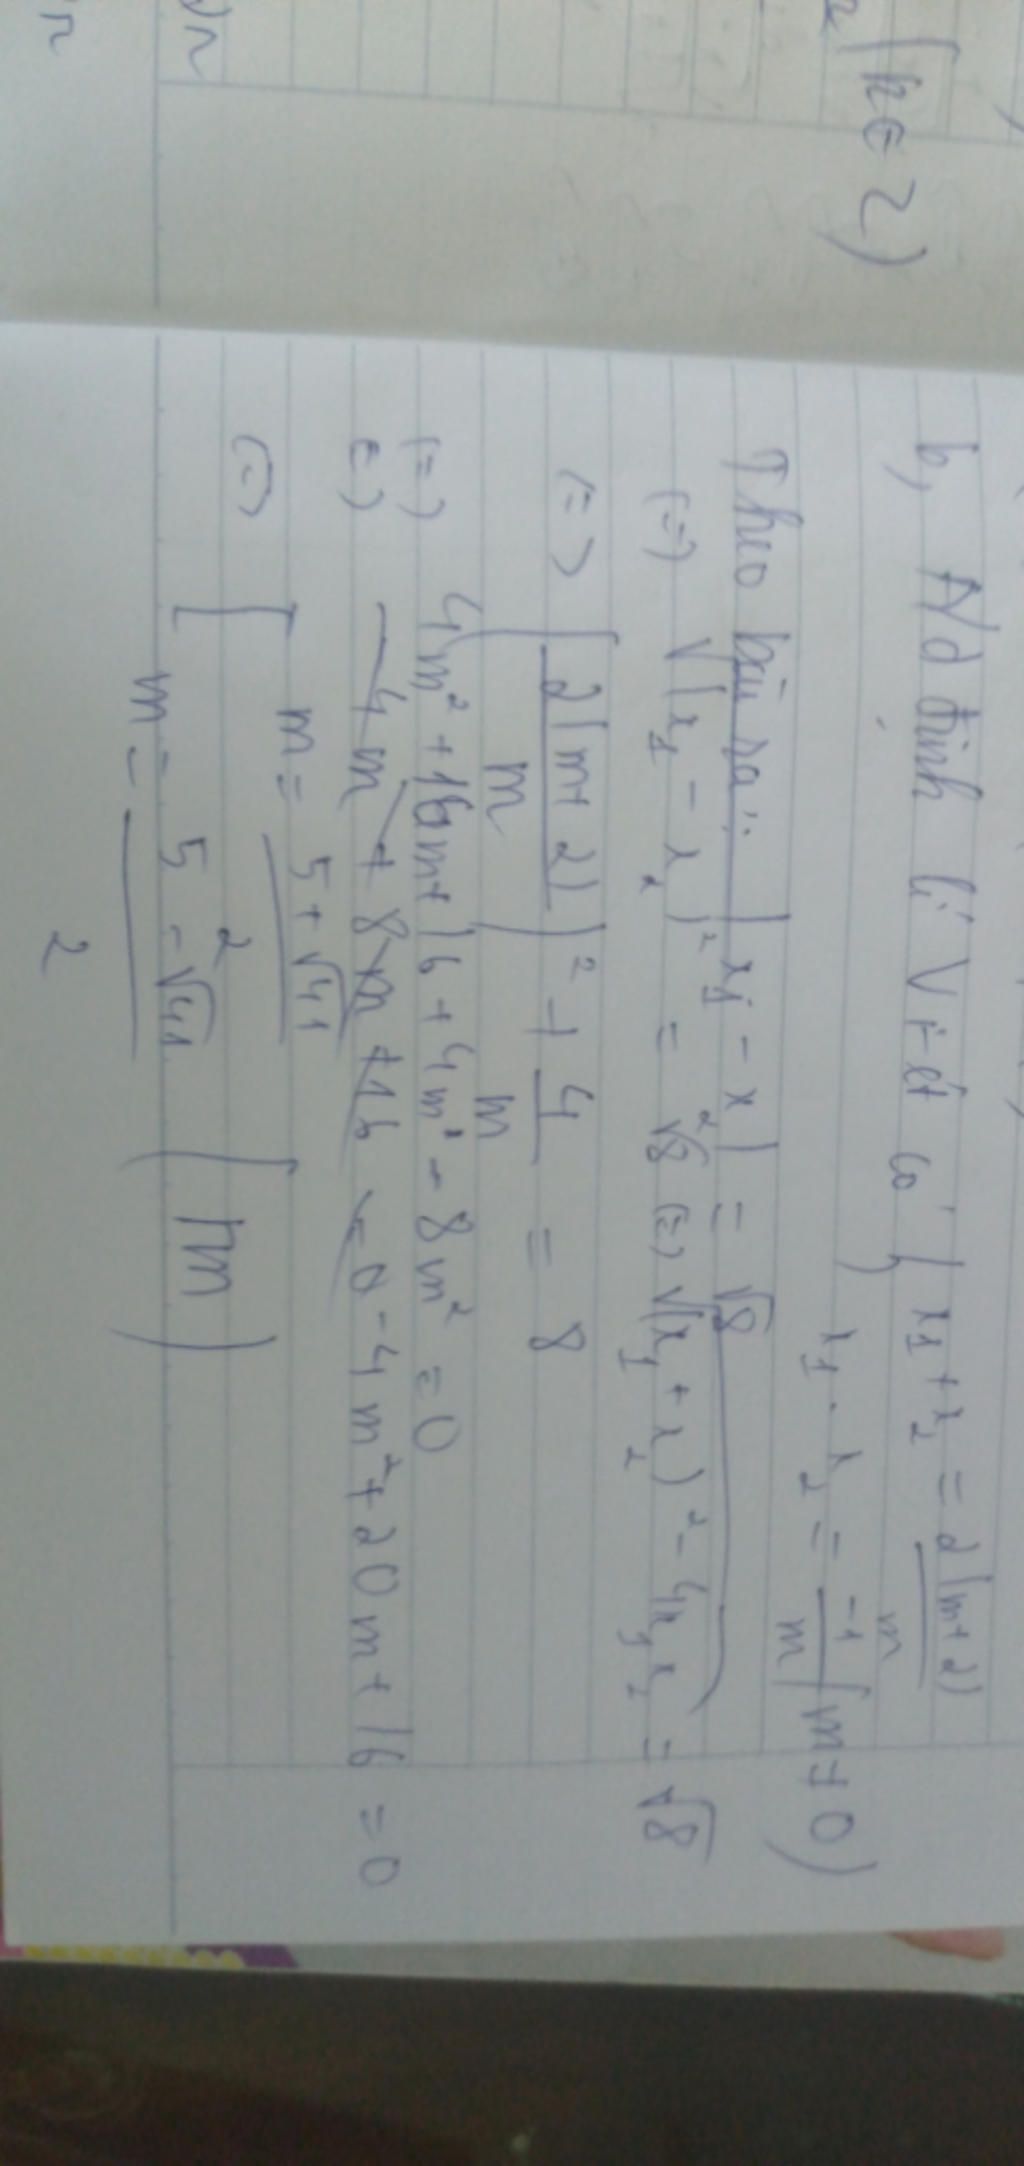 (k∈Z)
b, Nd định lí Vi-ét có x₁ + x₂ = 2(m+2)/m
x₁ . x₂ = -1/m (m≠0)
Theo bài ra: |x₁ - x₂| = √8
(=) √(x₁ - x₂)² = √8 (=) √(x₁ + x₂)² - 4x₁x₂ = √8
(=) (2(m+2)/m)² + 4/m = 8
(=) 4m² + 16m + 16 + 4m - 8m² = 0
(=) - 4m² + 20m + 16 = 0
(=) [ m = 5 + √41 / 2
m = 5 - √41 / 2 (tm)